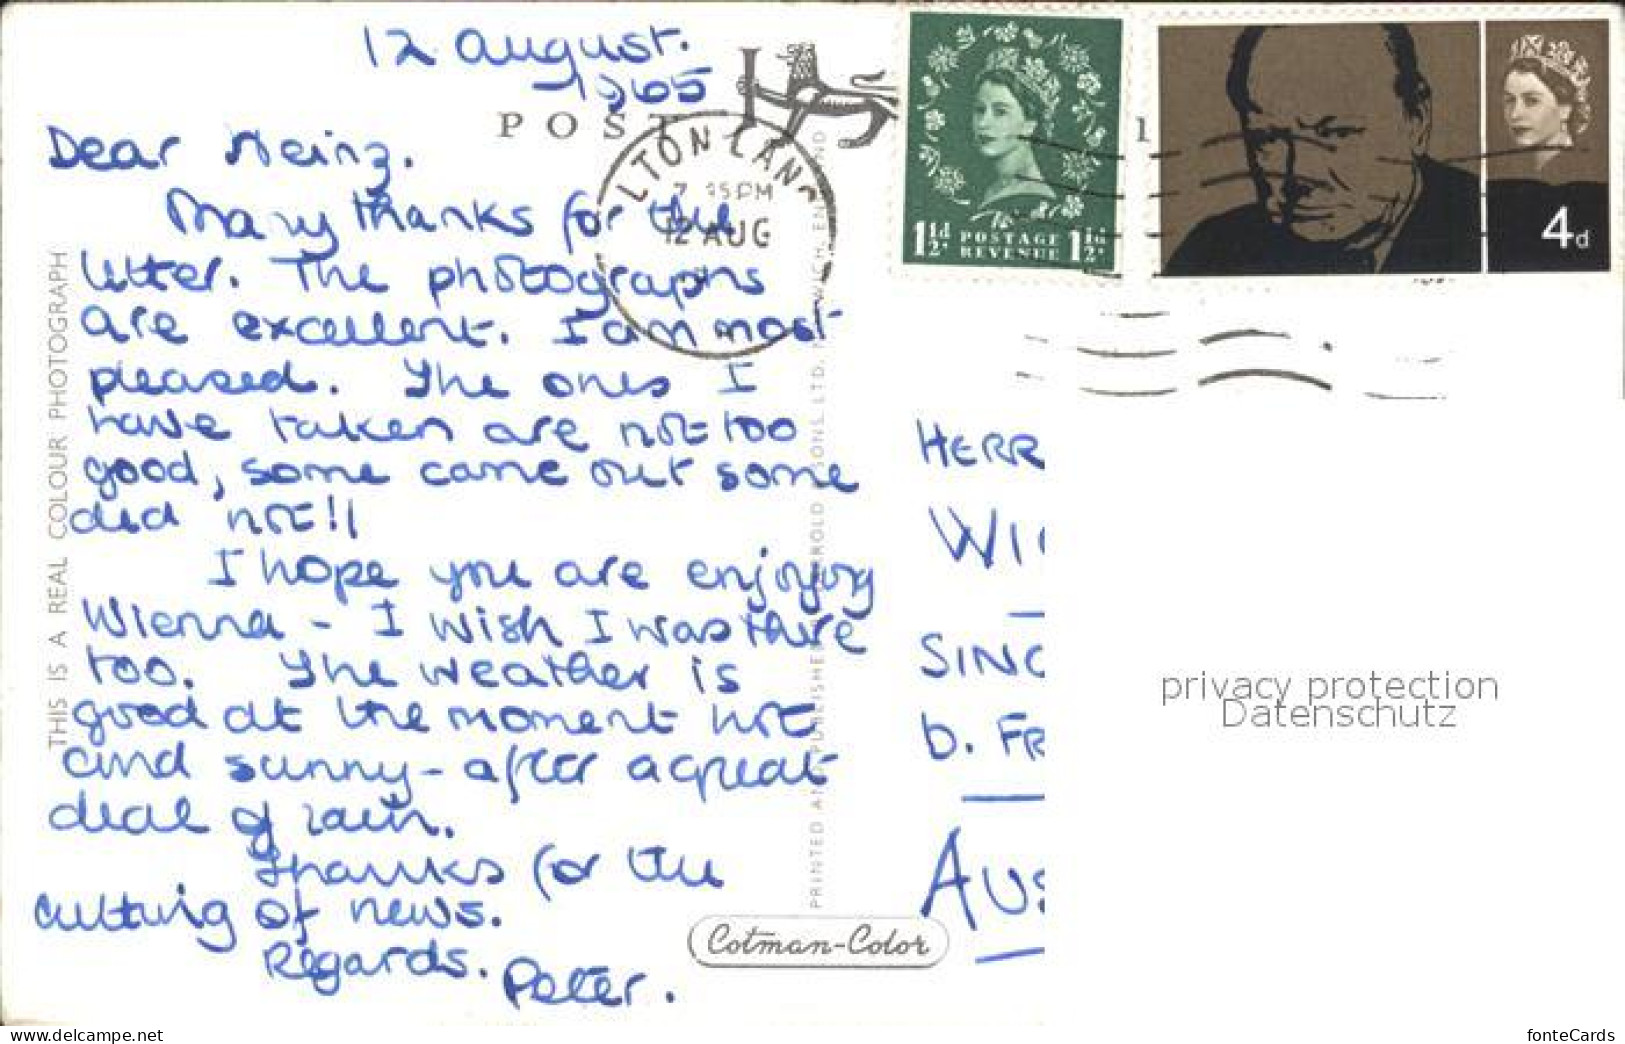 12 August.
1965
POST
LTON LANC
7 15PM
12 AUG
1½d POSTAGE REVENUE 1½d
4d
Dear Heinz.
Many thanks for the
letter. The photographs
are excellent. I am most
pleased. The ones I
have taken are not too
good, some came out some
did not!!
I hope you are enjoying
Wienna - I wish I was there
too. The weather is
good at the moment hot
and sunny - after a great
deal of rain.
Thanks for the
cutting of news.
Regards.
Peter.
THIS IS A REAL COLOUR PHOTOGRAPH
PRINTED AND PUBLISHED SONS, LTD.
Cotman-Color
HERR
SINC
b. FR
AUS
privacy protection
Datenschutz
www.delcampe.net
fonteCards